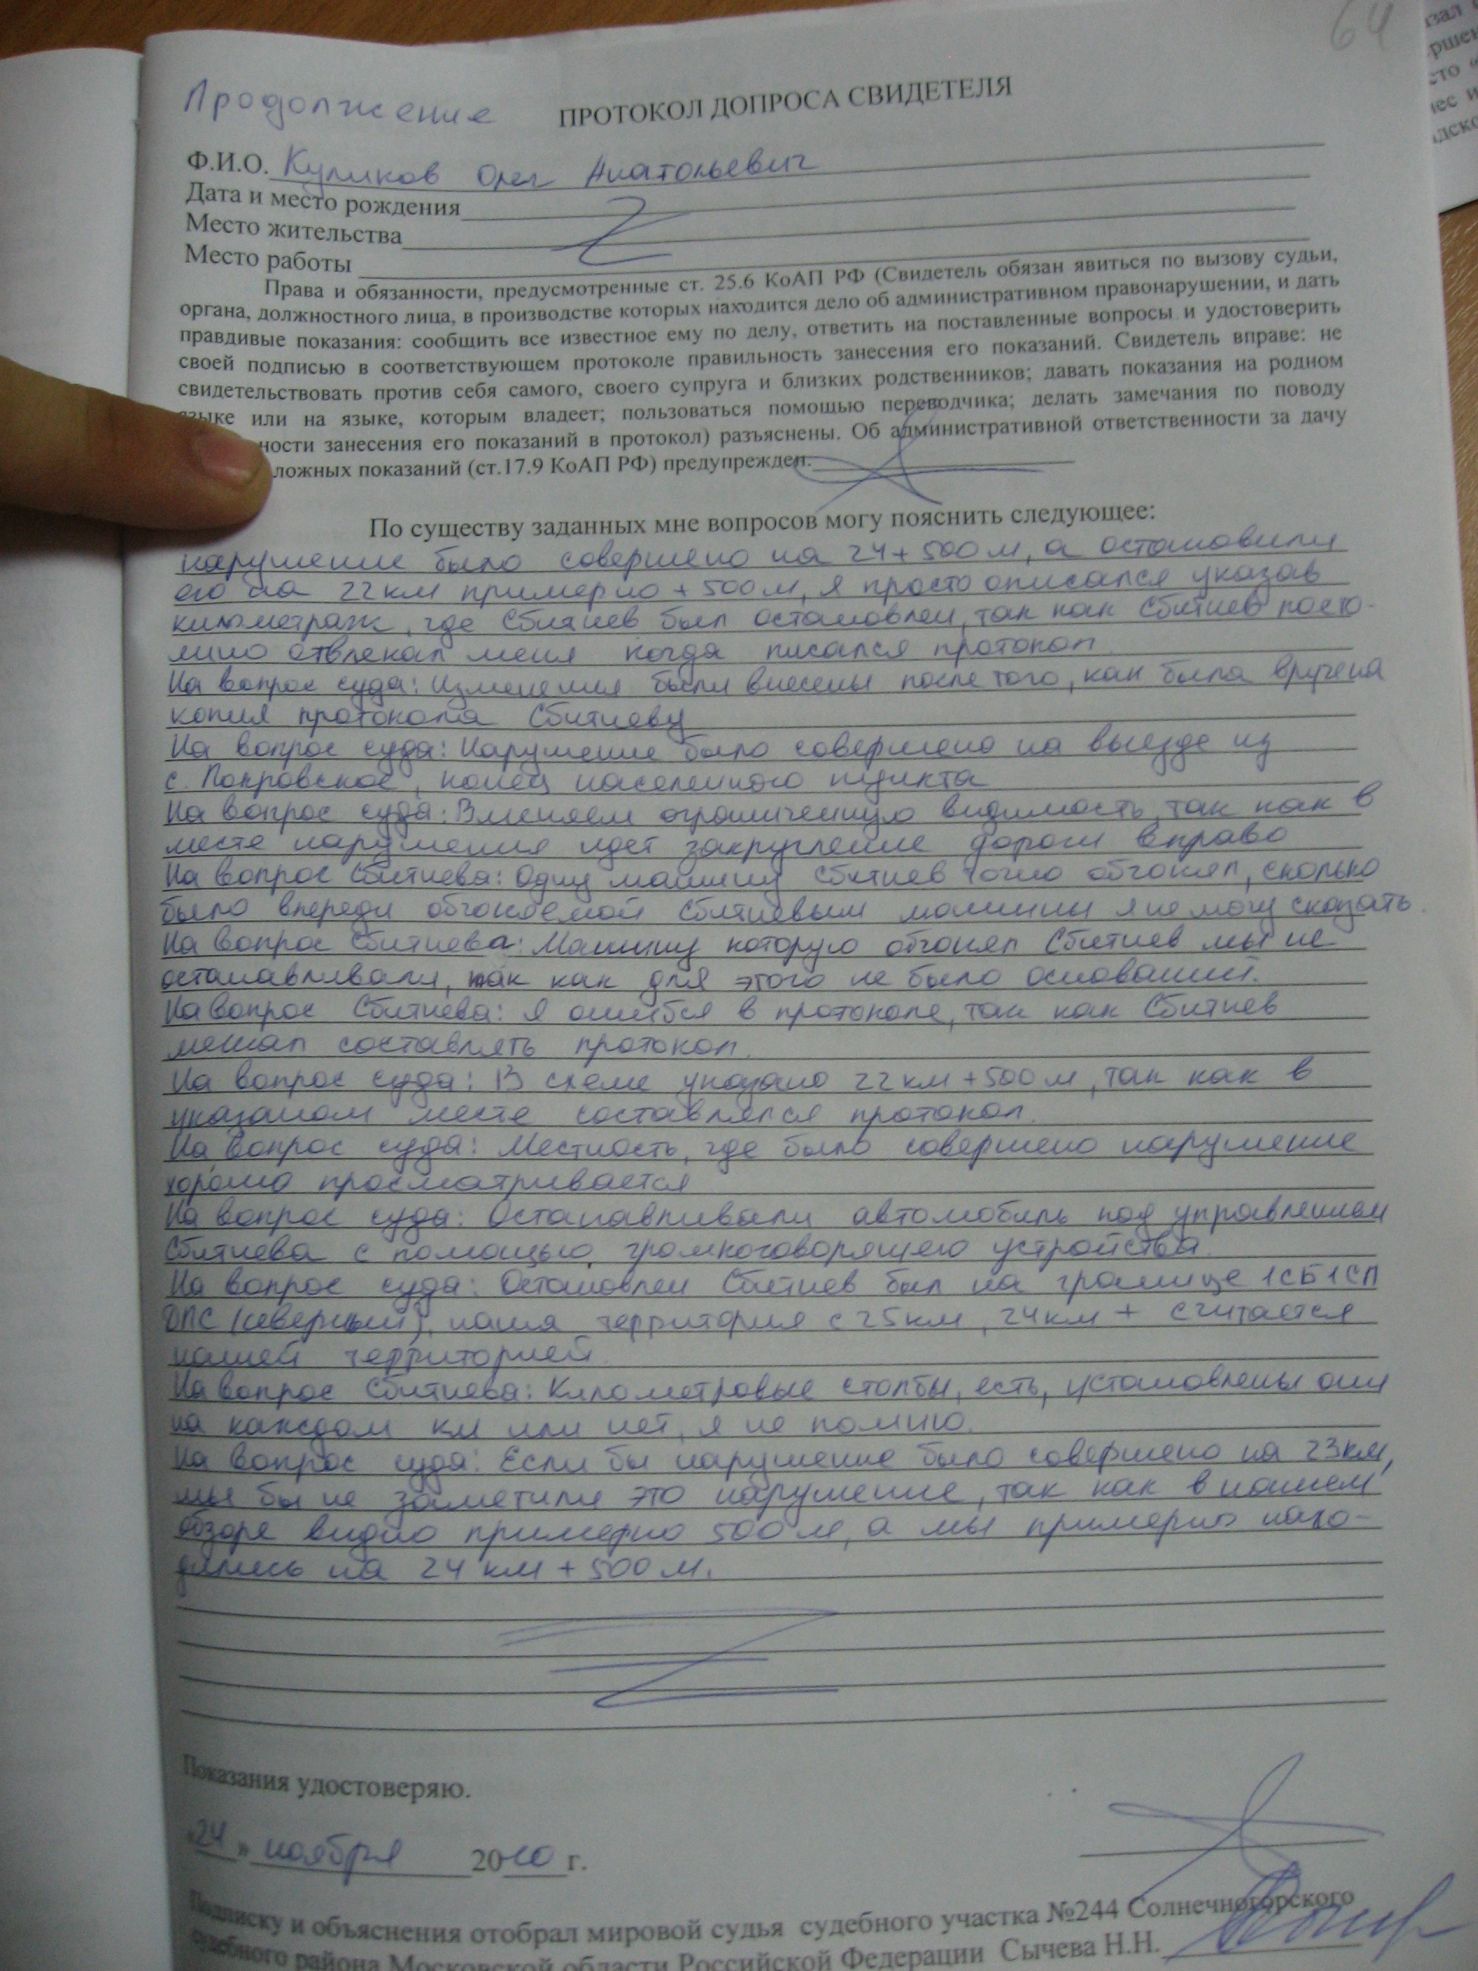 64
Продолжение
ПРОТОКОЛ ДОПРОСА СВИДЕТЕЛЯ
Ф.И.О. Куликов Олег Анатольевич
Дата и место рождения
Место жительства
Место работы
Права и обязанности, предусмотренные ст. 25.6 КоАП РФ (Свидетель обязан явиться по вызову судьи,
органа, должностного лица, в производстве которых находится дело об административном правонарушении, и дать
правдивые показания: сообщить все известное ему по делу, ответить на поставленные вопросы и удостоверить
своей подписью в соответствующем протоколе правильность занесения его показаний. Свидетель вправе: не
свидетельствовать против себя самого, своего супруга и близких родственников; давать показания на родном
языке или на языке, которым владеет; пользоваться помощью переводчика; делать замечания по поводу
ности занесения его показаний в протокол) разъяснены. Об административной ответственности за дачу
ложных показаний (ст.17.9 КоАП РФ) предупрежден.
По существу заданных мне вопросов могу пояснить следующее:
нарушение было совершено на 24+500м, а остановили
его на 22км примерно +500м, я просто описался указав
километраж, где Сбитнев был остановлен, так как Сбитнев посто-
янно отвлекал меня когда писался протокол.
На вопрос суда: Изменения были внесены после того, как была вручена
копия протокола Сбитневу
На вопрос суда: Нарушение было совершено на выезде из
с. Покровское, конец населенного пункта
На вопрос суда: Вменяем ограниченную видимость, так как в
месте нарушения идет закругление дороги вправо
На вопрос Сбитнева: Одну машину Сбитнев точно обгонял, сколько
было впереди обгоняемой Сбитневым машины я не могу сказать.
На вопрос Сбитнева: Машину которую обгонял Сбитнев мы не
останавливали, так как для этого не было оснований.
На вопрос Сбитнева: Я ошибся в протоколе, так как Сбитнев
мешал составлять протокол.
На вопрос суда: В схеме указано 22км+500м, так как в
указаном месте составлялся протокол.
На вопрос суда: Местность, где было совершено нарушение
хорошо просматривается
На вопрос суда: Останавливали автомобиль под управлением
Сбитнева с помощью громкоговорящего устройства.
На вопрос суда: Остановлен Сбитнев был на границе 1СБ1СП
ДПС (северный), наша территория с 25км, 24км+ считается
нашей территорией.
На вопрос Сбитнева: Километровые столбы, есть, установлены они
на каждом км или нет, я не помню.
На вопрос суда: Если бы нарушение было совершено на 23км,
мы бы не заметили это нарушение, так как в нашем
обзоре видно примерно 500м, а мы примерно нахо-
дились на 24 км + 500м.
Показания удостоверяю.
«24» ноября 2010 г.
Подписку и объяснения отобрал мировой судья судебного участка №244 Солнечногорского
судебного района Московской области Российской Федерации Сычева Н.Н.